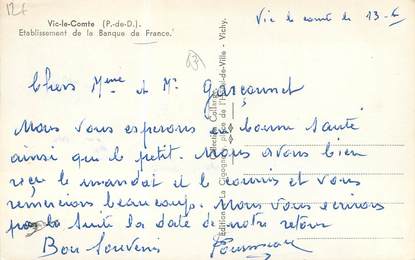 12f
Vic-le-Comte (P.-de-D.).
Etablissement de la Banque de France.
Vic le comte le 13-6
Chers Mme et Mr Garçonnet
Nous vous espérons en bonne santé
ainsi que le petit. Nous avons bien
reçu le mandat et le courrier et vous
remercions beaucoup. Nous vous écrirons
par la suite la date de notre retour
Bon Souvenir
Editions La Cigogne place de l'Hôtel-de-Ville - Vichy.